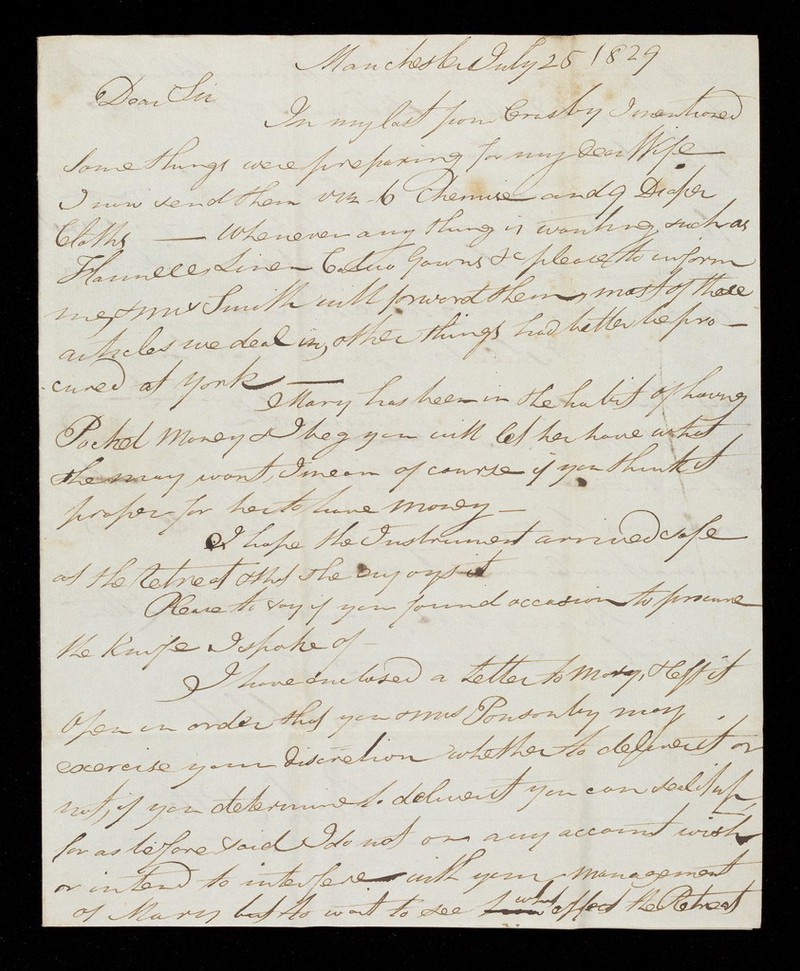 Manchester July 25 1829
Dear Sir
In my last from Crosby I mentioned
some things were preparing for my dear Wife
I now send them viz 6 Chemise and 9 Diaper
Cloths — Whenever any thing is wanting such as
Flannells Linen Calico Gowns &c please to inform
me, & Mrs Smith will forward them, most of these
articles we deal in, other things had better be pro-
cured at York —
Mary has been in the habit of having
Pocket Money & I beg you will let her have what
she may want, I mean of course if you think it
proper for her to have money —
I hope the Instrument arrived safe
at the Retreat & that she enjoys it
Please to say if you found occasion to procure
the Knife I spoke of —
I have enclosed a Letter to Mary, & left it
Open in order that you & Mrs Ponsonby may
exercise your discretion whether to deliver it or
not, if you determine to deliver it you can seal it up,
for as before said I do not on any account wish
or intend to interfere with your management
of Mary but to wait to see what effect the Retreat